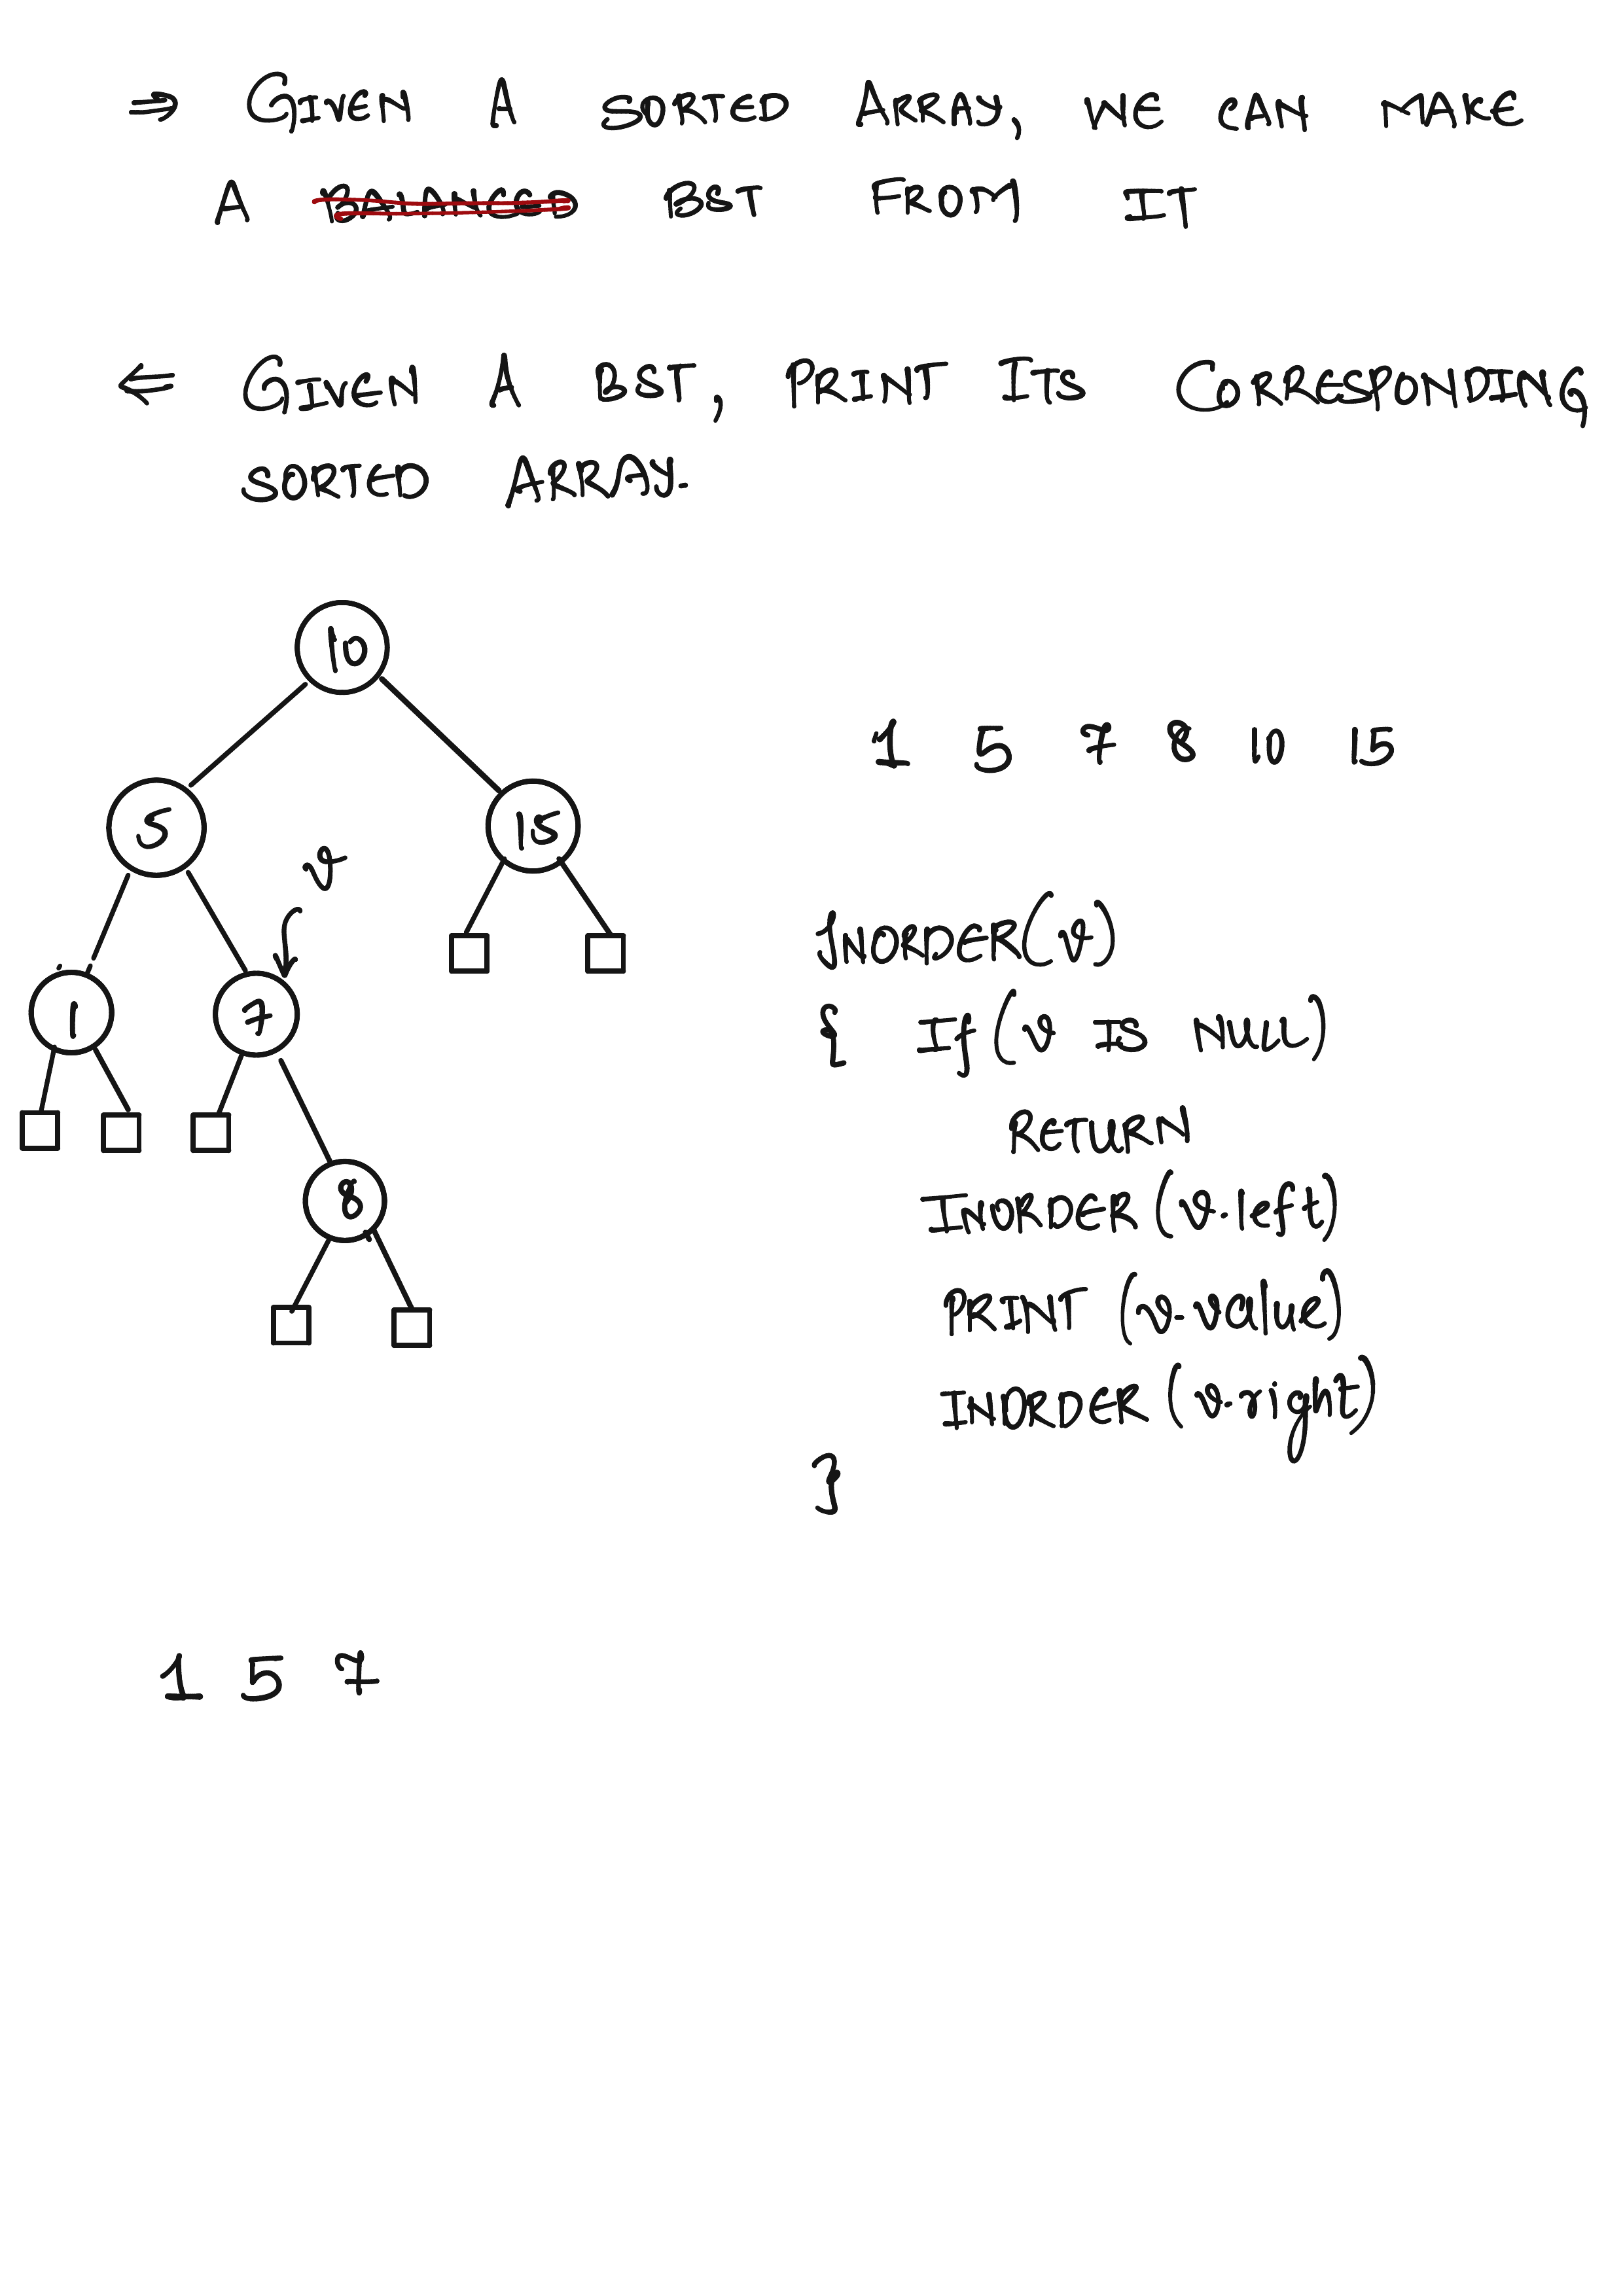 ⇒ GIVEN A SORTED ARRAY, WE CAN MAKE
A BALANCED BST FROM IT
⇐ GIVEN A BST, PRINT ITS CORRESPONDING
SORTED ARRAY.
10
5 15
v
1 7
8
1 5 7 8 10 15
INORDER(v)
{ If (v IS NULL)
RETURN
INORDER (v.left)
PRINT (v.value)
INORDER (v.right)
}
1 5 7